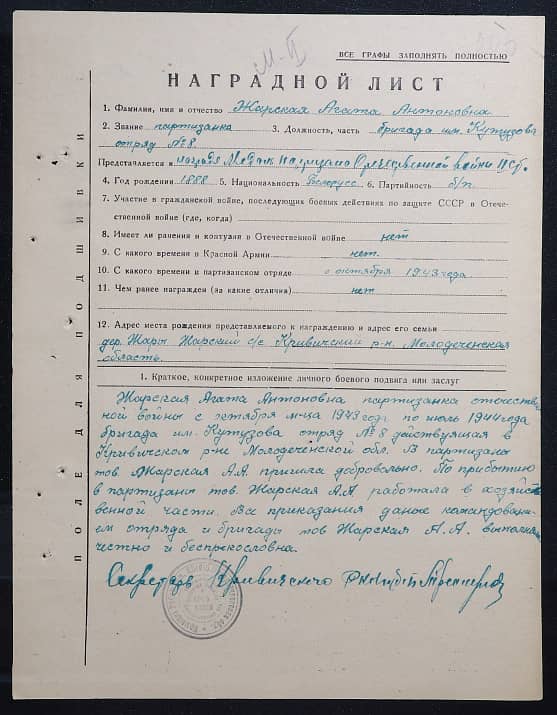 М-II
ВСЕ ГРАФЫ ЗАПОЛНЯТЬ ПОЛНОСТЬЮ
НАГРАДНОЙ ЛИСТ
1. Фамилия, имя и отчество Жарская Агата Антоновна
2. Звание партизанка 3. Должность, часть бригада им. Кутузова
отряд №8.
Представляется к награде Медаль Партизано Отечественной Войны II ст.
4. Год рождения 1888 5. Национальность Белорусс 6. Партийность б/п.
7. Участие в гражданской войне, последующих боевых действиях по защите СССР и Отече-
ственной войне (где, когда)
8. Имеет ли ранения и контузия в Отечественной войне нет
9. С какого времени в Красной Армии нет.
10. С какого времени в партизанском отряде с октября 1943 года
11. Чем ранее награжден (за какие отличия) нет
12. Адрес места рождения представляемого к награждению и адрес его семьи
дер. Жары Жарский с/с Кривичский р-н. Молодеченская
область.
1. Краткое, конкретное изложение личного боевого подвига или заслуг
Жарская Агата Антоновна партизанка отечестве-
ной войны с октября м-ца 1943 год по июль 1944 года
бригада им. Кутузова отряд №8 действующая в
Кривичском р-не Молодеченской обл. В партизаны
тов Жарская А.А пришла добровольно. По прибытию
в партизаны тов. Жарская А.А работала в хозяйст-
венной части. Все приказания даные командовани-
ем отряда и бригады тов Жарская А.А. выполняла
честно и беспрекословна.
Секретарь Кривичского
ПОЛЕ ДЛЯ ПОДШИВКИ